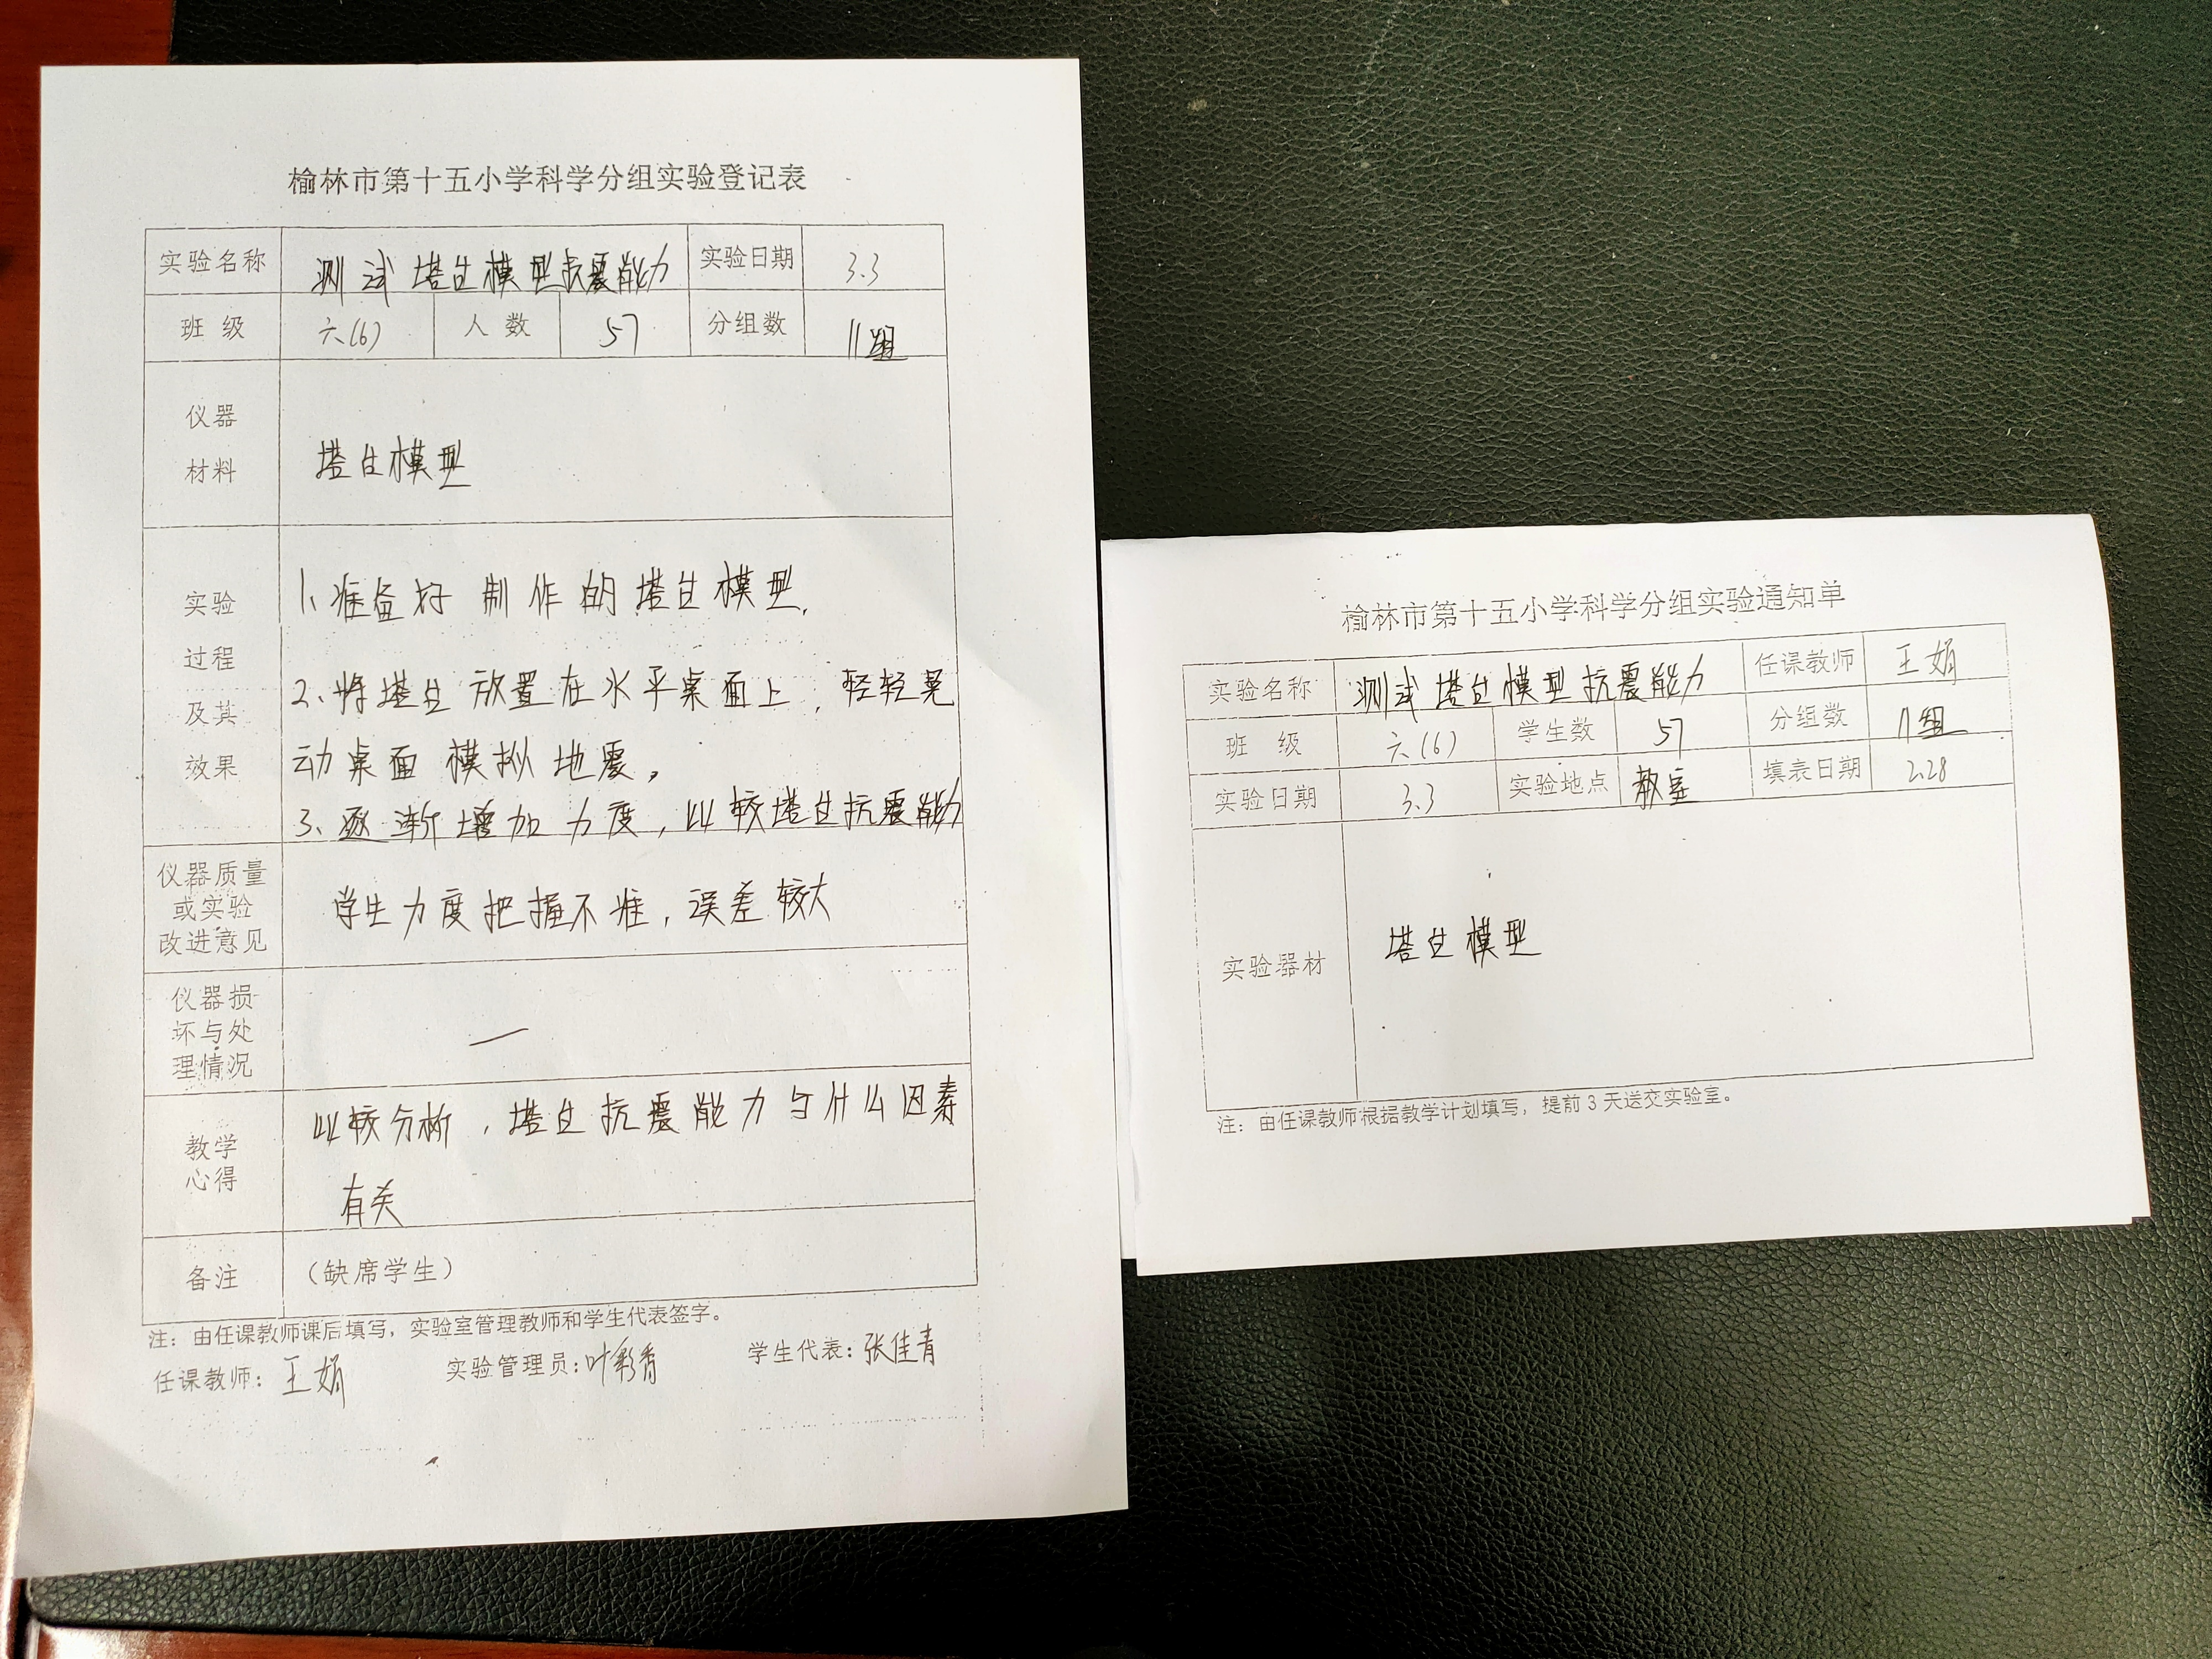 榆林市第十五小学科学分组实验登记表
实验名称 测试塔台模型抗震能力 实验日期 3.3
班 级 六(6) 人 数 57 分组数 11组
仪器
材料
塔台模型
实验
过程
及其
效果
1、准备好制作的塔台模型.
2、将塔台放置在水平桌面上,轻轻晃
动桌面模拟地震,
3、逐渐增加力度,比较塔台抗震能力
仪器质量
或实验
改进意见
学生力度把握不准,误差较大
仪器损
坏与处
理情况
—
教学
心得
比较分析,塔台抗震能力与什么因素
有关
备注 (缺席学生)
注:由任课教师课后填写,实验室管理教师和学生代表签字。
任课教师:王娟 实验管理员:叶彩香 学生代表:张佳青
榆林市第十五小学科学分组实验通知单
实验名称 测试塔台模型抗震能力 任课教师 王娟
班 级 六(6) 学生数 57 分组数 11组
实验日期 3.3 实验地点 教室 填表日期 2.28
实验器材 塔台模型
注:由任课教师根据教学计划填写,提前3天送交实验室。